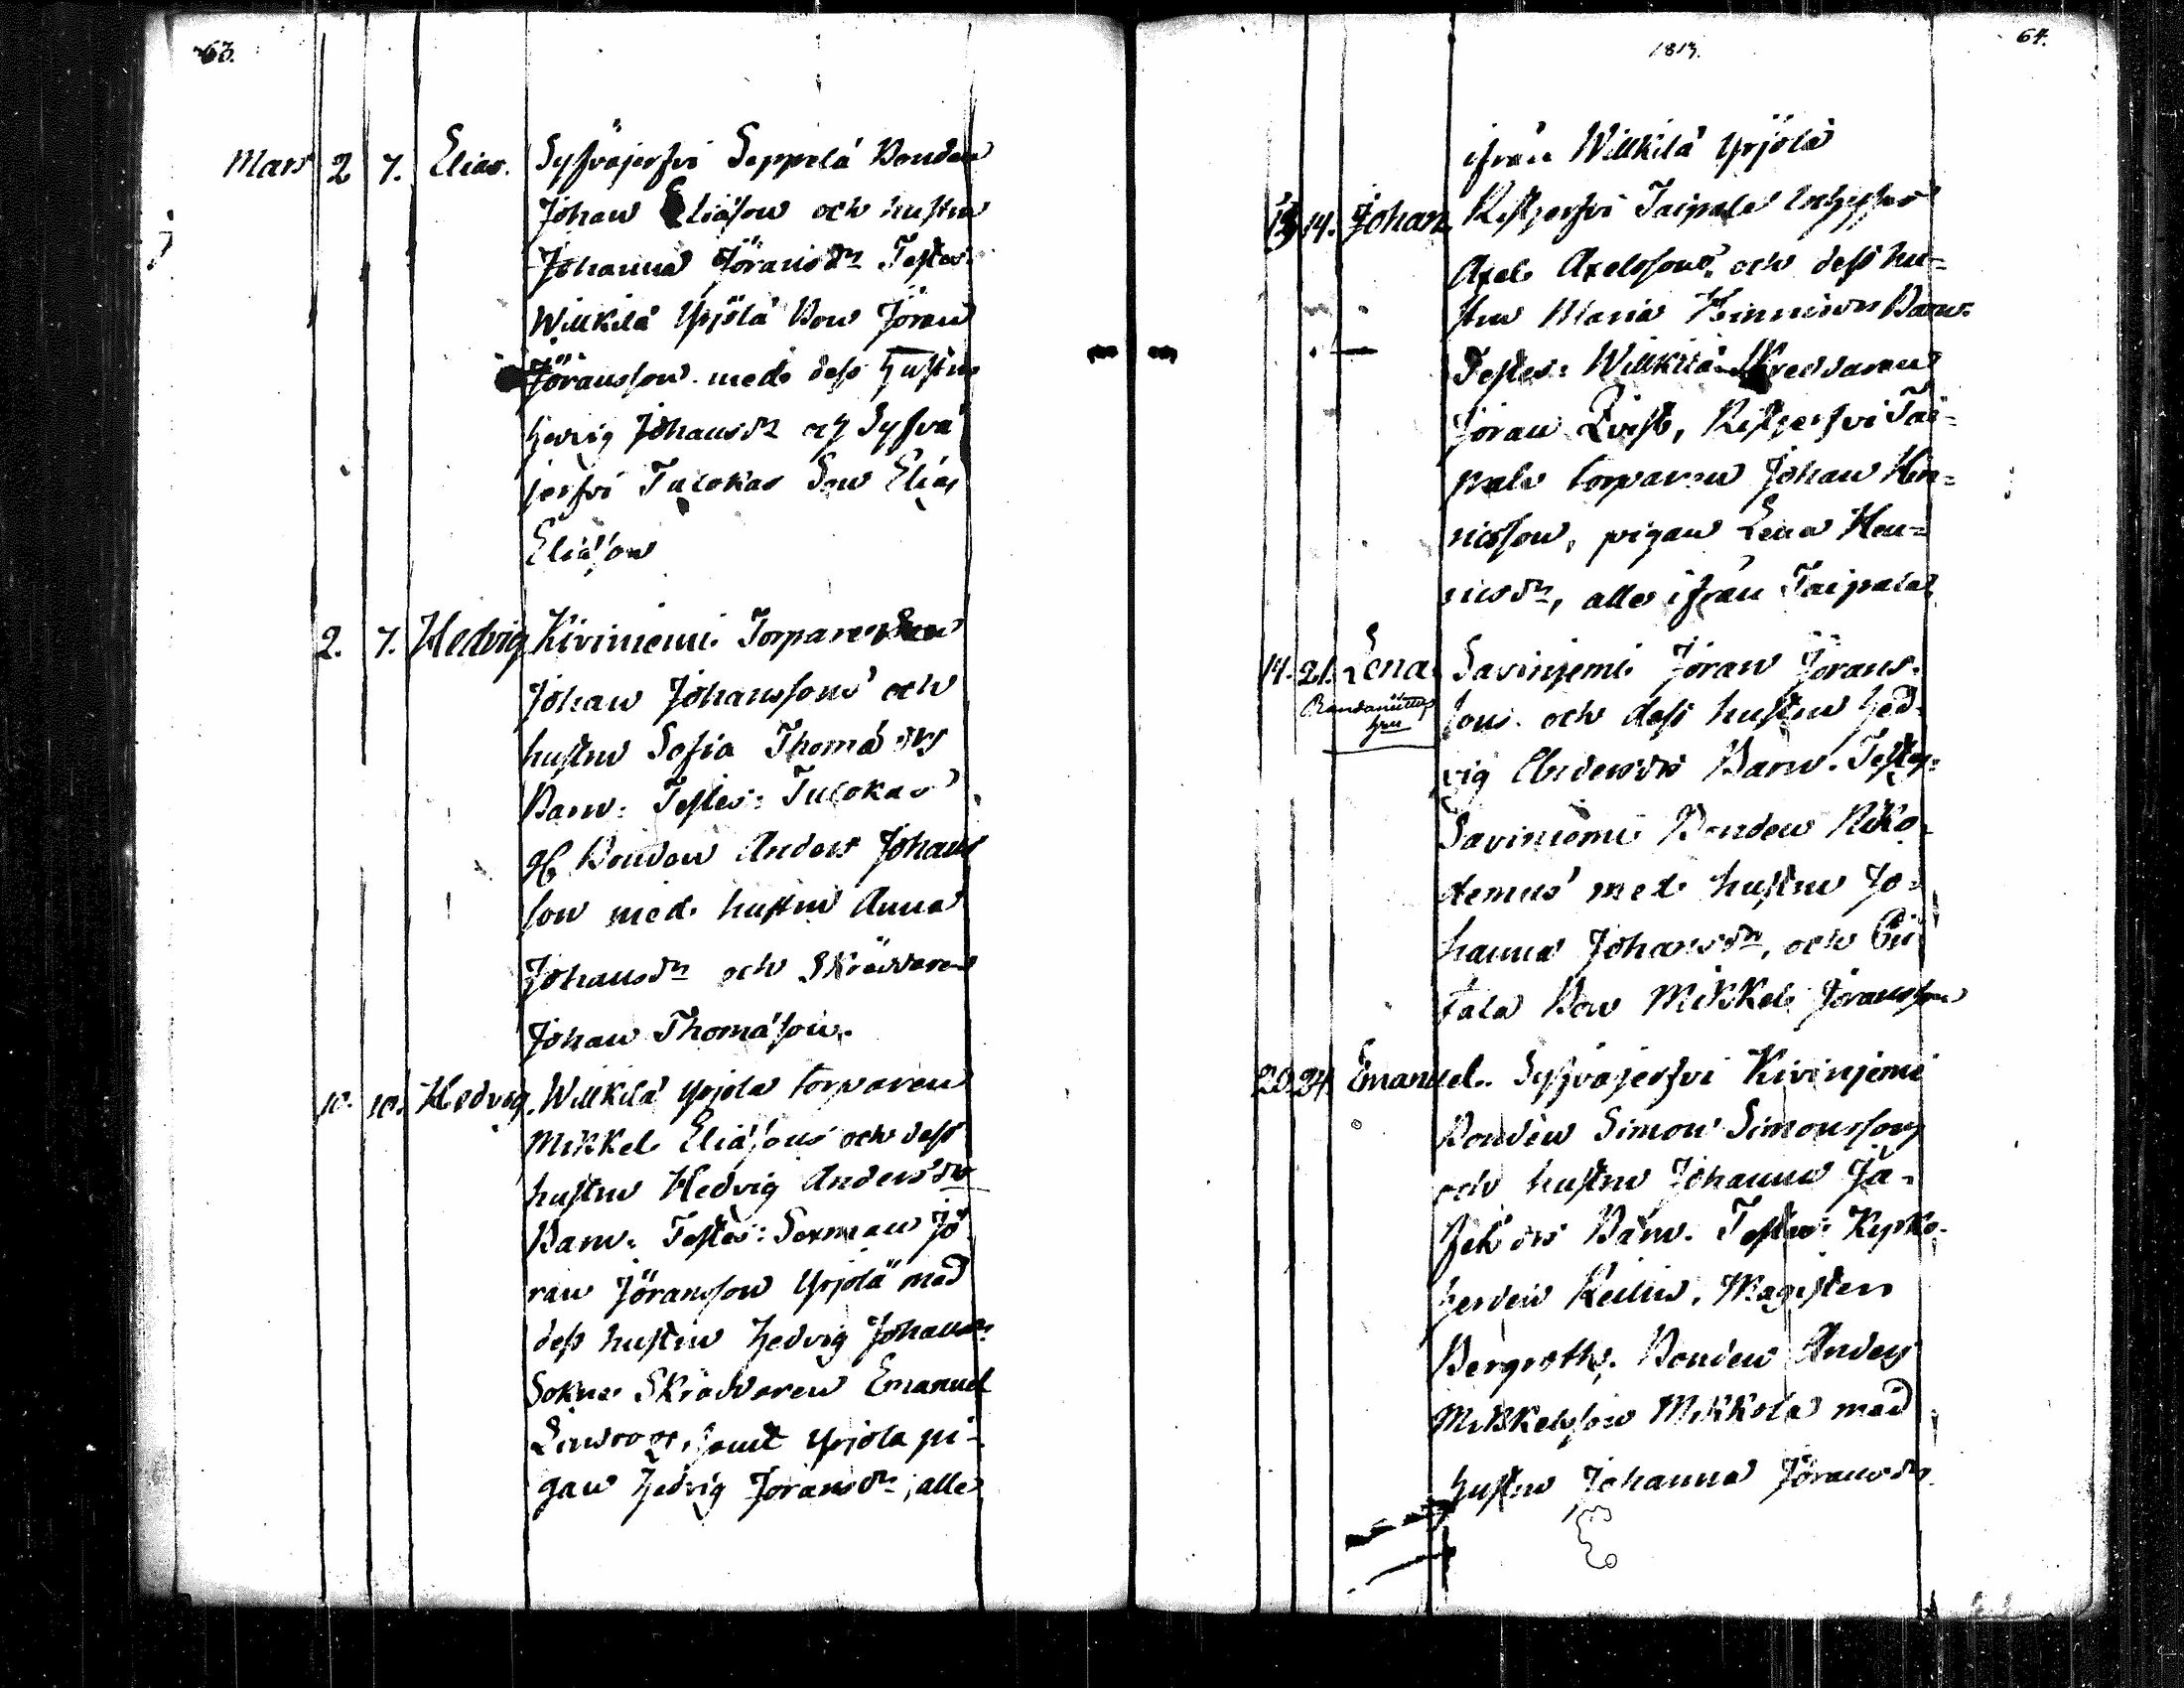 63.
Mars 2 7. Elias. Syfväjerfvi Seppelä Bonden
Johan Eliäson och hustru
Johanna Jöransdr Testes
Willkilä Yrjölä Bon Jöran
Jöransson med dess hustru
Hedvig Johansdr och Syfvä
jerfvi Tulokas Son Elias
Eliäson
2. 7. Hedvig Kiviniemi Torparen
Johan Johanssons och
hustru Sofia Thomädrs
Barn: Testes: Tulokas
Bonden Anders Johans
son med hustru Anna
Johansdr och Skräddaren
Johan Thomäson.
10. 10. Hedvig. Willkilä Yrjola torparen
Mikkel Eliäsons och dess
hustru Hedvig Andersdrs
Barn. Testes: Sexman Jö
ran Jöransson Yrjolä med
dess hustru Hedvig Johansdr
Sokne Skräddaren Emanuel
samt Yrjola pi-
gan Hedvig Joransdr, alle
64.
1813.
ifrån Willkilä Yrjölä
13 14. Johan Ristjerfvi Taipale
Axel Axelssons och dess hu=
stru Maria Hinrichsdrs Barn.
Testes: Willkilä Skreddaren
Jöran Qvist, Ristjerfvi Tai=
pale torparen Johan Hin=
ricsson, pigan Lena Hen=
ricsdr, alle ifrån Taipale
14. 21. Lena Savinjemi Jöran Jörans-
sons och dess hustru Hed-
vig Andersdrs Barn. Testes:
Saviniemi Bonden Niko-
demus med hustru Jo-
hanna Johansdr, och
tala Bon Mikkel Jöransson
20. 24. Emanuel. Syfväjerfvi Kivinjemi
Bonden Simon Simonssons
och hustru Johanna Ja-
Barn. Testes: Kyrko-
herden Magister
Bergroth, Bonden Anders
Mikkelsson Mikkola med
hustru Johanna Jöransdr.